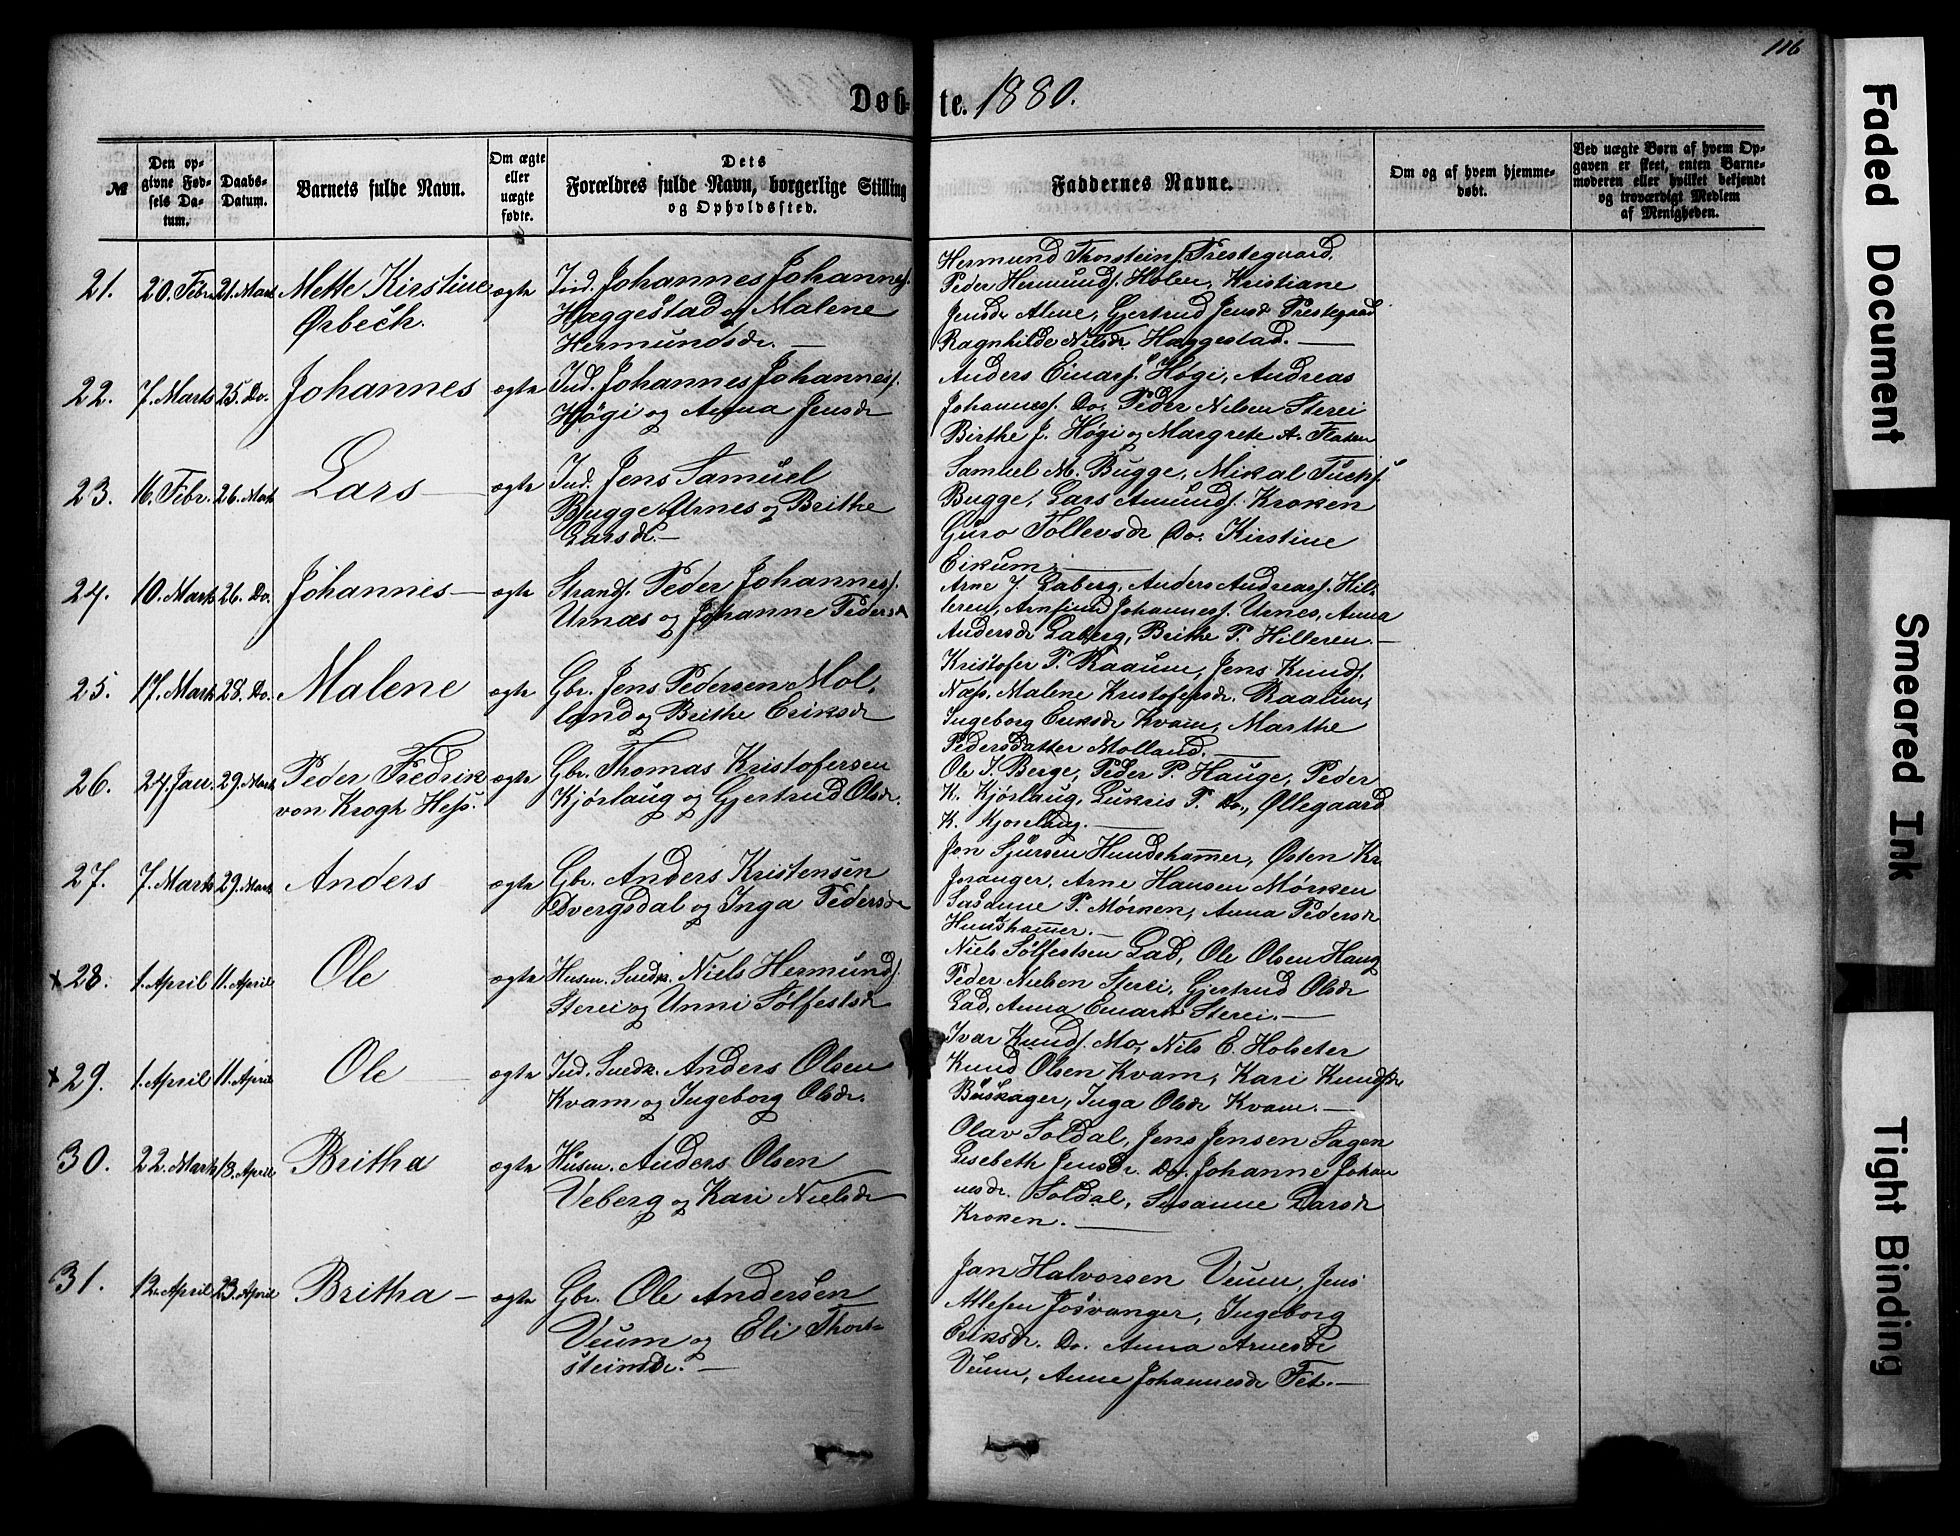 116
Døbte. 1880.
№
Den opgivne Fødsels Datum.
Daabs-Datum.
Barnets fulde Navn.
Om ægte eller uægte fødte.
Dets Forældres fulde Navn, borgerlige Stilling og Opholdssted.
Faddernes Navne.
Om og af hvem hjemmedøbt.
Ved uægte Børn af hvem Opgaven er skeet, enten Barnemoderen eller hvilket bekjendt og troværdigt Medlem af Menigheden.
21. 20. Febr. 21. Marts Mette Kirstine ægte Ind. Johannes Johannes.
Ørbech. Hæggestad og Malene
Hermundsdr. —
Hermund Thorsteins. Prestegaard,
Peder Hermunds. Holen, Kristiane
Jensdr Alme, Gjertrud Jensdr Prestegaard
Ragnhilde Nilsdr. Hæggestad. —
22. 7. Marts 25. Do. Johannes ægte Ind. Johannes Johannes.
Høgi og Anna Jensdr
Anders Einars. Høgi, Andreas
Johannes. Do. Peder Nilsen Sterei
Birthe J. Høgi og Margrete A. Flaten
23. 16. Febr. 26. Marts Lars — ægte Ind. Jens Samuel
Bugge Urnes og Brithe
Larsdr. —
Samuel M. Bugge, Mikal
Bugge, Lars Amunds. Kroken
Guro Tollevsdr Do. Kirstine
Eikum. —
24. 10. Marts 26. Do. Johannes — ægte Strands. Peder Johannes.
Urnæs og Johanne Pedersdr
Arne J. Laberg, Anders Andreas. Hil-
leren, Arnfind Johannes. Urnes, Anna
Andersdr Laberg, Brithe P. Hilleren. —
25. 17. Marts 28. Do. Malene ægte Gbr. Jens Pedersen Mol-
land og Brithe Eriksdr
Kristofer P. Raaum, Jens Knuds.
Næs, Malene Kristofersdr. Raaum,
Ingeborg Eriksdr Kvam, Marthe
Pedersdatter Molland. —
26. 24. Jan. 29. Marts Peder Fredrik ægte Gbr. Thomas Kristofersen
von Krogh Hess. Kjørlaug og Gjertrud Olsdr.
Ole J. Berge, Peder P. Hauge, Peder
K. Kjørlaug, Lukris P. Do., Øllegaard
K. Kjørlaug. —
27. 7. Marts 29. Marts Anders ægte Gbr. Anders Kristensen
Dvergsdal og Inga Pedersdr
Jon Sjursen Hundshammer, Østen Kr.
Joranger, Arne Hansen Mørken
Sasanne P. Mørken, Anna Pedersdr
Hundshammer. —
x 28. 1. April 11. April Ole ægte Husm. Snedk. Niels Hermunds.
Sterei og Unni Sølfestsdr
Niels Sølfestsen Lad, Ole Olsen Haug
Peder Nielsen Sterei, Gjertrud Olsdr
Lad, Anna Einarsdr Sterei. —
x 29. 1. April 11. April Ole — ægte Ind. Snedk. Anders Olsen
Kvam og Ingeborg Olsdr.
Ivar Knuds. Mo, Nils E. Holseter
Knud Olsen Kvam, Kari Knudsdr
Buskager, Inga Olsdr Kvam. —
30. 22. Marts 18. April Britha ægte Husm. Anders Olsen
Veberg og Kari Nielsdr
Olav Soldal, Jens Jensen Sagen
Lisebeth Jensdr. Do. Johanne Johan
nesdr. Soldal, Susanne Larsdr
Kroken. —
31. 12. April 23. April Britha — ægte Gbr. Ole Andersen
Veum og Eli Thor-
steinsdr. —
Jan Halvorsen Veum, Jens
Atlesen Josvanger, Ingeborg
Eriksdr. Do. Anna Arnesdr
Veum, Anne Johannesdr Fet. —
Faded Document
Smeared Ink
Tight Binding